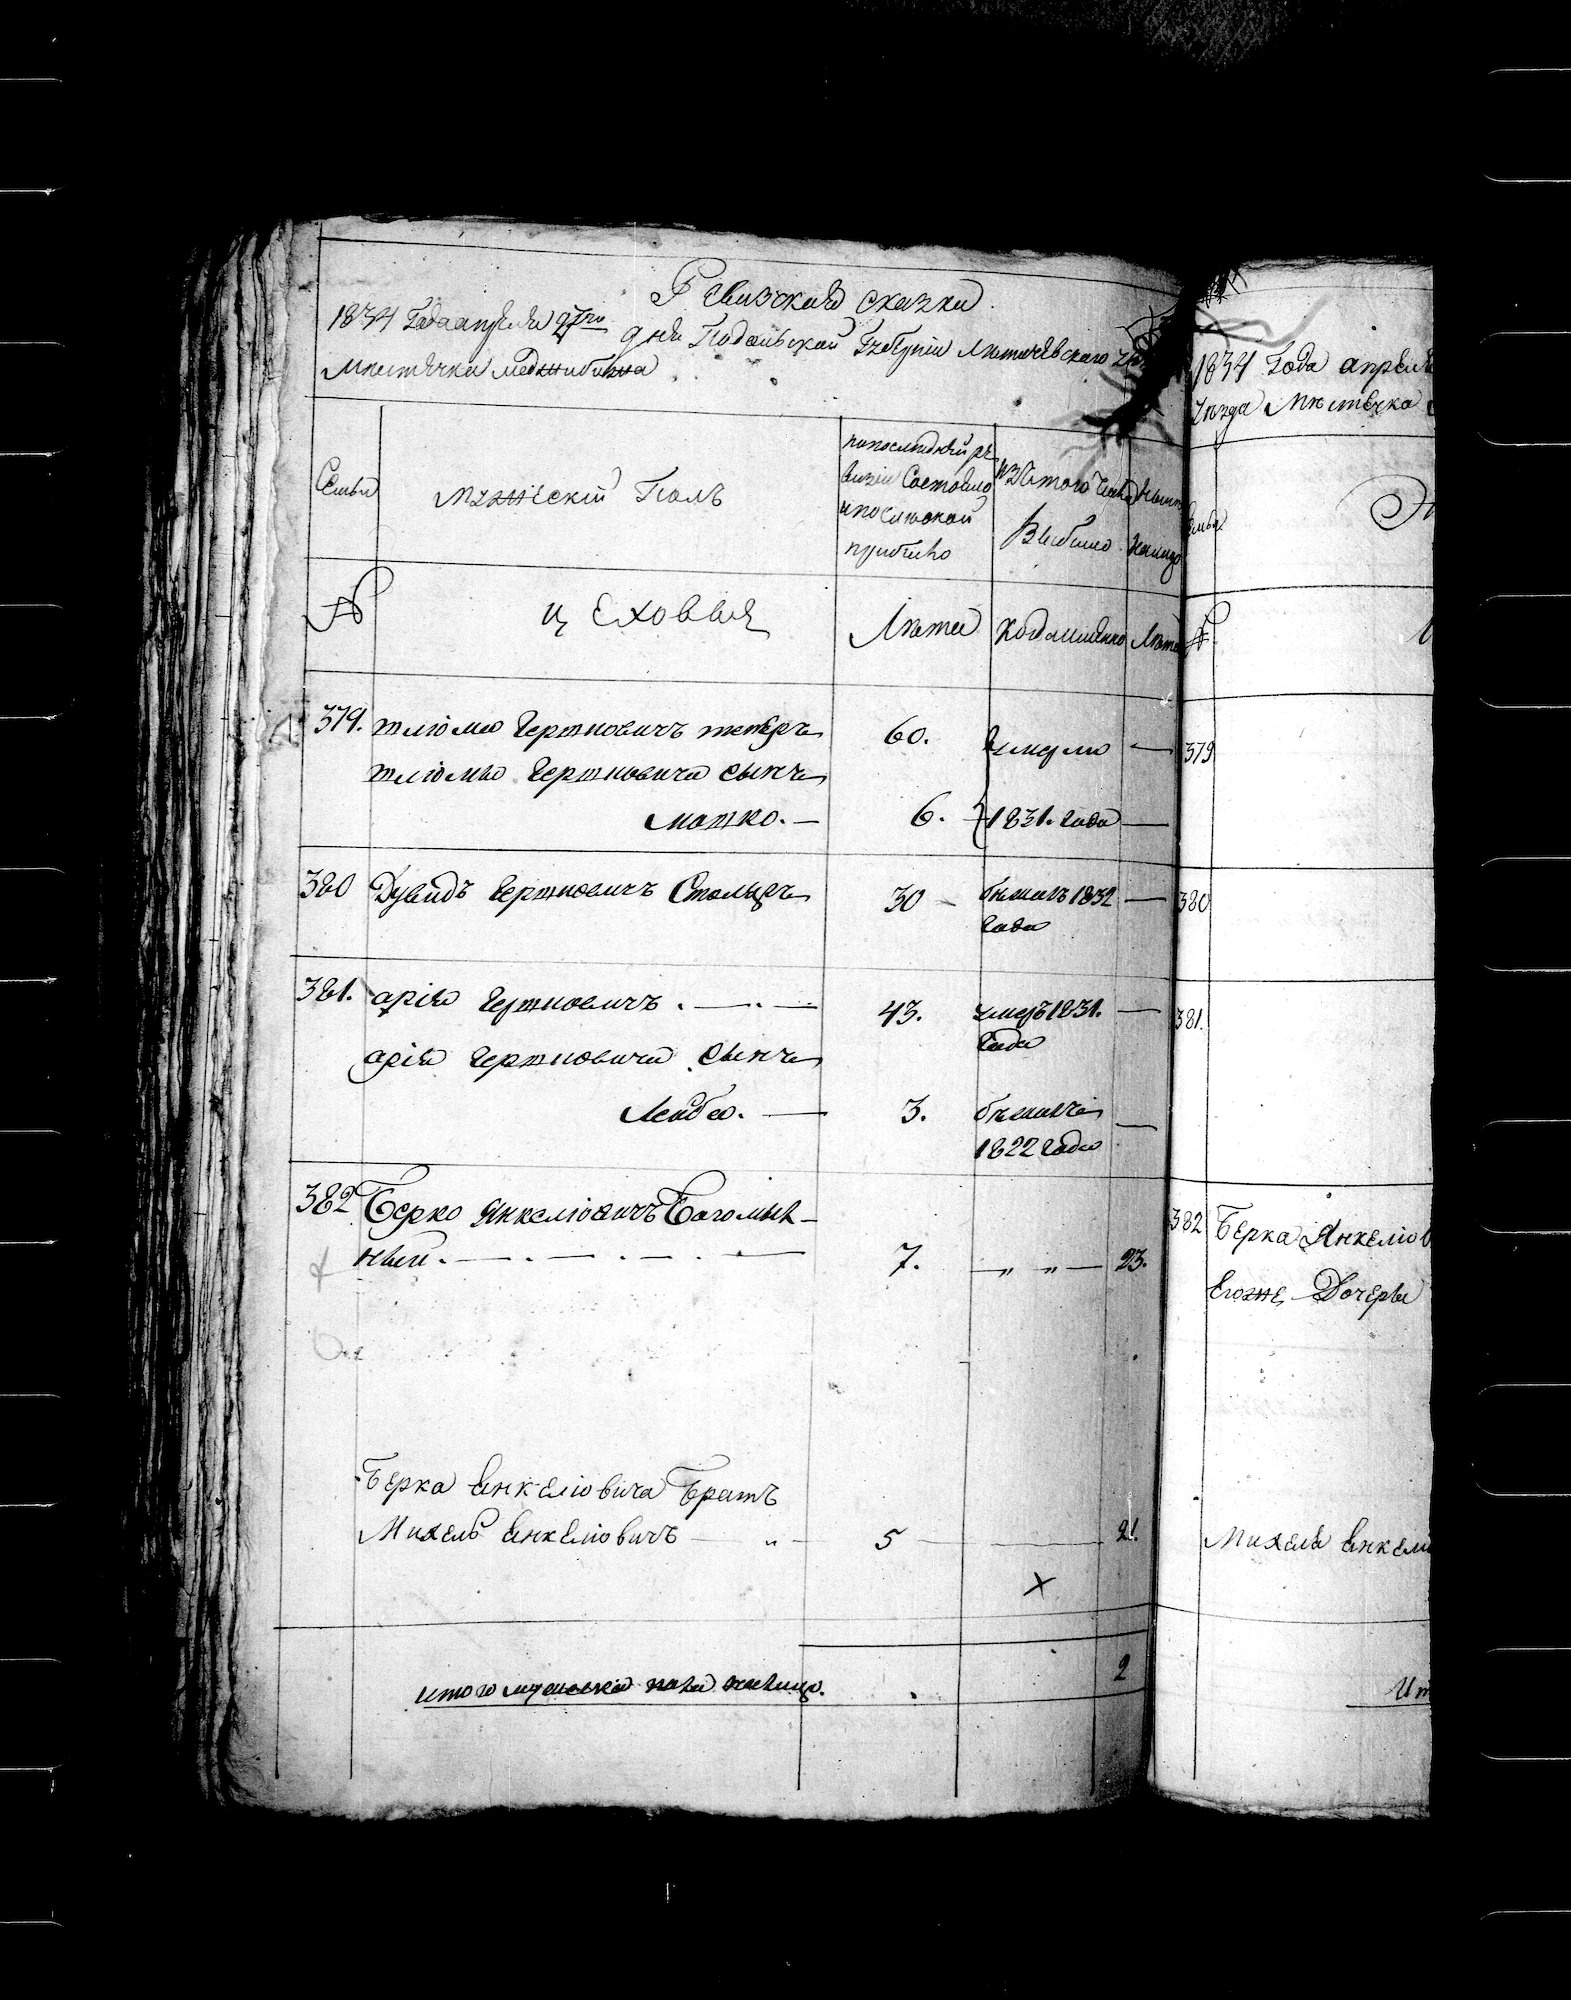 Ревизская сказка
1834 Года апреля 27го дня Подольской Губерніи Летичевского
Местечка Меджибижа
Семьи
Мужескій Полъ
по последней ре
визіи Состояло
и после оной
прибыло
Из того числа
Выбыло
Ныне
налицо
№
Цеховые
Лета
Когда именно
Лета
379.
Гершковичъ
60.
умерли
Гершковича сынъ
Мошко. —
6.
1831. года
380
Дувидъ Гершковичъ Столяръ
30 –
бежалъ 1832
Года
381.
Арія Гершковичъ . — . —
43.
умеръ 1831.
Года
Арія Гершковича сынъ
Лейба. —
3.
бежалъ
1822 Года
382
Берко Янкеліовичъ Богомыль-
ный. — . — . — . —
7.
— „ „ —
23.
Берка Енкеліовича Братъ
Михель Енкеліовичъ — „ –
5
21.
X
итого мужеска пола налицо.
2
1834 Года апреля
Уезда Местечка
Семьи
№
379
380
381.
382
Берка Янкеліов
Егоже Дочери
Михеля Енкели
Ит